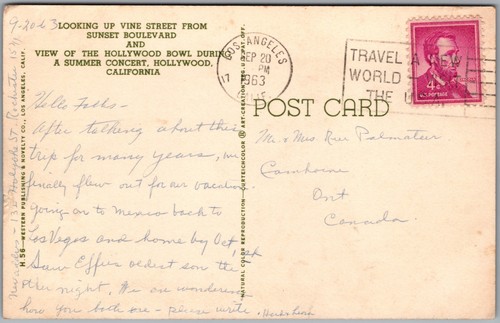 9-20-63
LOOKING UP VINE STREET FROM
SUNSET BOULEVARD
AND
VIEW OF THE HOLLYWOOD BOWL DURING
A SUMMER CONCERT, HOLLYWOOD,
CALIFORNIA
Hello Folks-
After talking about this
trip for many years, we
finally flew out for our vacation.
going on to Mexico back to
Las Vegas and home by Oct, 1st
Saw Effies oldest son the
other night. We are wondering
how you both are - please write.
H-56-WESTERN PUBLISHING & NOVELTY CO., LOS ANGELES, CALIF.
New address - 13 St. Rochester
NATURAL COLOR REPRODUCTION CURTEICHCOLOR ® ART-CREATION REG. U.S. PAT. OFF.
LOS ANGELES
SEP 20
PM
1963
CALIF.
17
TRAVEL A NEW
WORLD
THE
4¢
U.S. POSTAGE
POST CARD
Mr & Mrs. Palmateer
Ont
Canada.